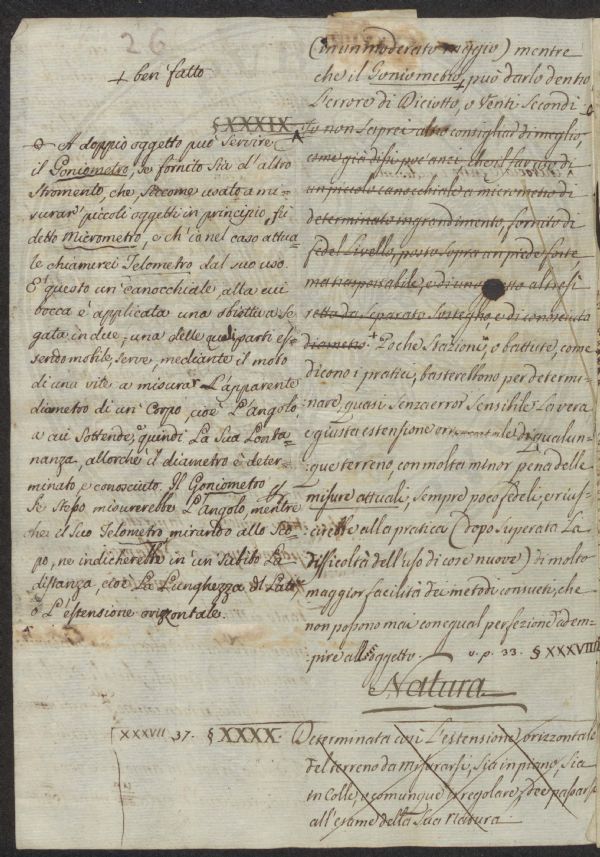 26
+ ben fatto
§ XXXIX.
A doppio oggetto può servire
il Goniometro, se fornito sia d'altro
stromento, che, siccome usato a mi-
surar' piccoli oggetti in principio, fù
detto Micrometro, e ch'io nel caso attua-
le chiamerei Telometro dal suo uso.
E' questo un' canocchiale, alla cui
bocca è applicata una obiettiva se-
gata in due; una delle quali parti es-
sendo mobile, serve, mediante il moto
di una vite a misurar L'apparente
diametro di un' Corpo, cioè L'angolo
a cui sottende, quindi La sua Lonta-
nanza, allorchè il diametro è deter-
minato e conosciuto. Il Goniometro
Se stesso misurerebbe L'angolo, mentre
che il suo Telometro mirando allo Sco-
po, ne indicherebbe in un' subito La
distanza, cioè La Lunghezza del Lato
o L'estensione orizzontale.
(in un moderato raggio) mentre
che il Goniometro, può darlo dentro
L'errore di Diciotto, o Venti Secondi.
Io non saprei consigliar di meglio,
come già dissi poc'anzi che il far uso di
un piccolo canocchiale a micrometro di
determinato ingrandimento, fornito di
fedel Livello, posto sopra un piede forte
ma trasportabile, e di altresì
retta da separato Sostegno, e di conosciuto
diametro. + Poche Stazioni, o battute, come
dicono i pratici, basterebbono per determi-
nare, quasi senza error sensibile La vera
e giusta estensione orizontale di qualun-
que terreno, con molta minor pena delle
misure attuali, sempre poco fedeli, e rius-
cirebbe alla pratica (dopo superata La
difficoltà dell'uso di cose nuove) di molto
maggior facilità dei metodi consueti, che
non possono mai con egual perfezione adem-
pire all'oggetto. v. p. 33. § XXXVIII
Natura
XXXVII 37. § XXXX. Determinata così L'estensione orizzontale
del terreno da misurarsi, sia in piano, sia
in Colle, o comunque irregolare, dee passarsi
all'esame della Sua Natura.